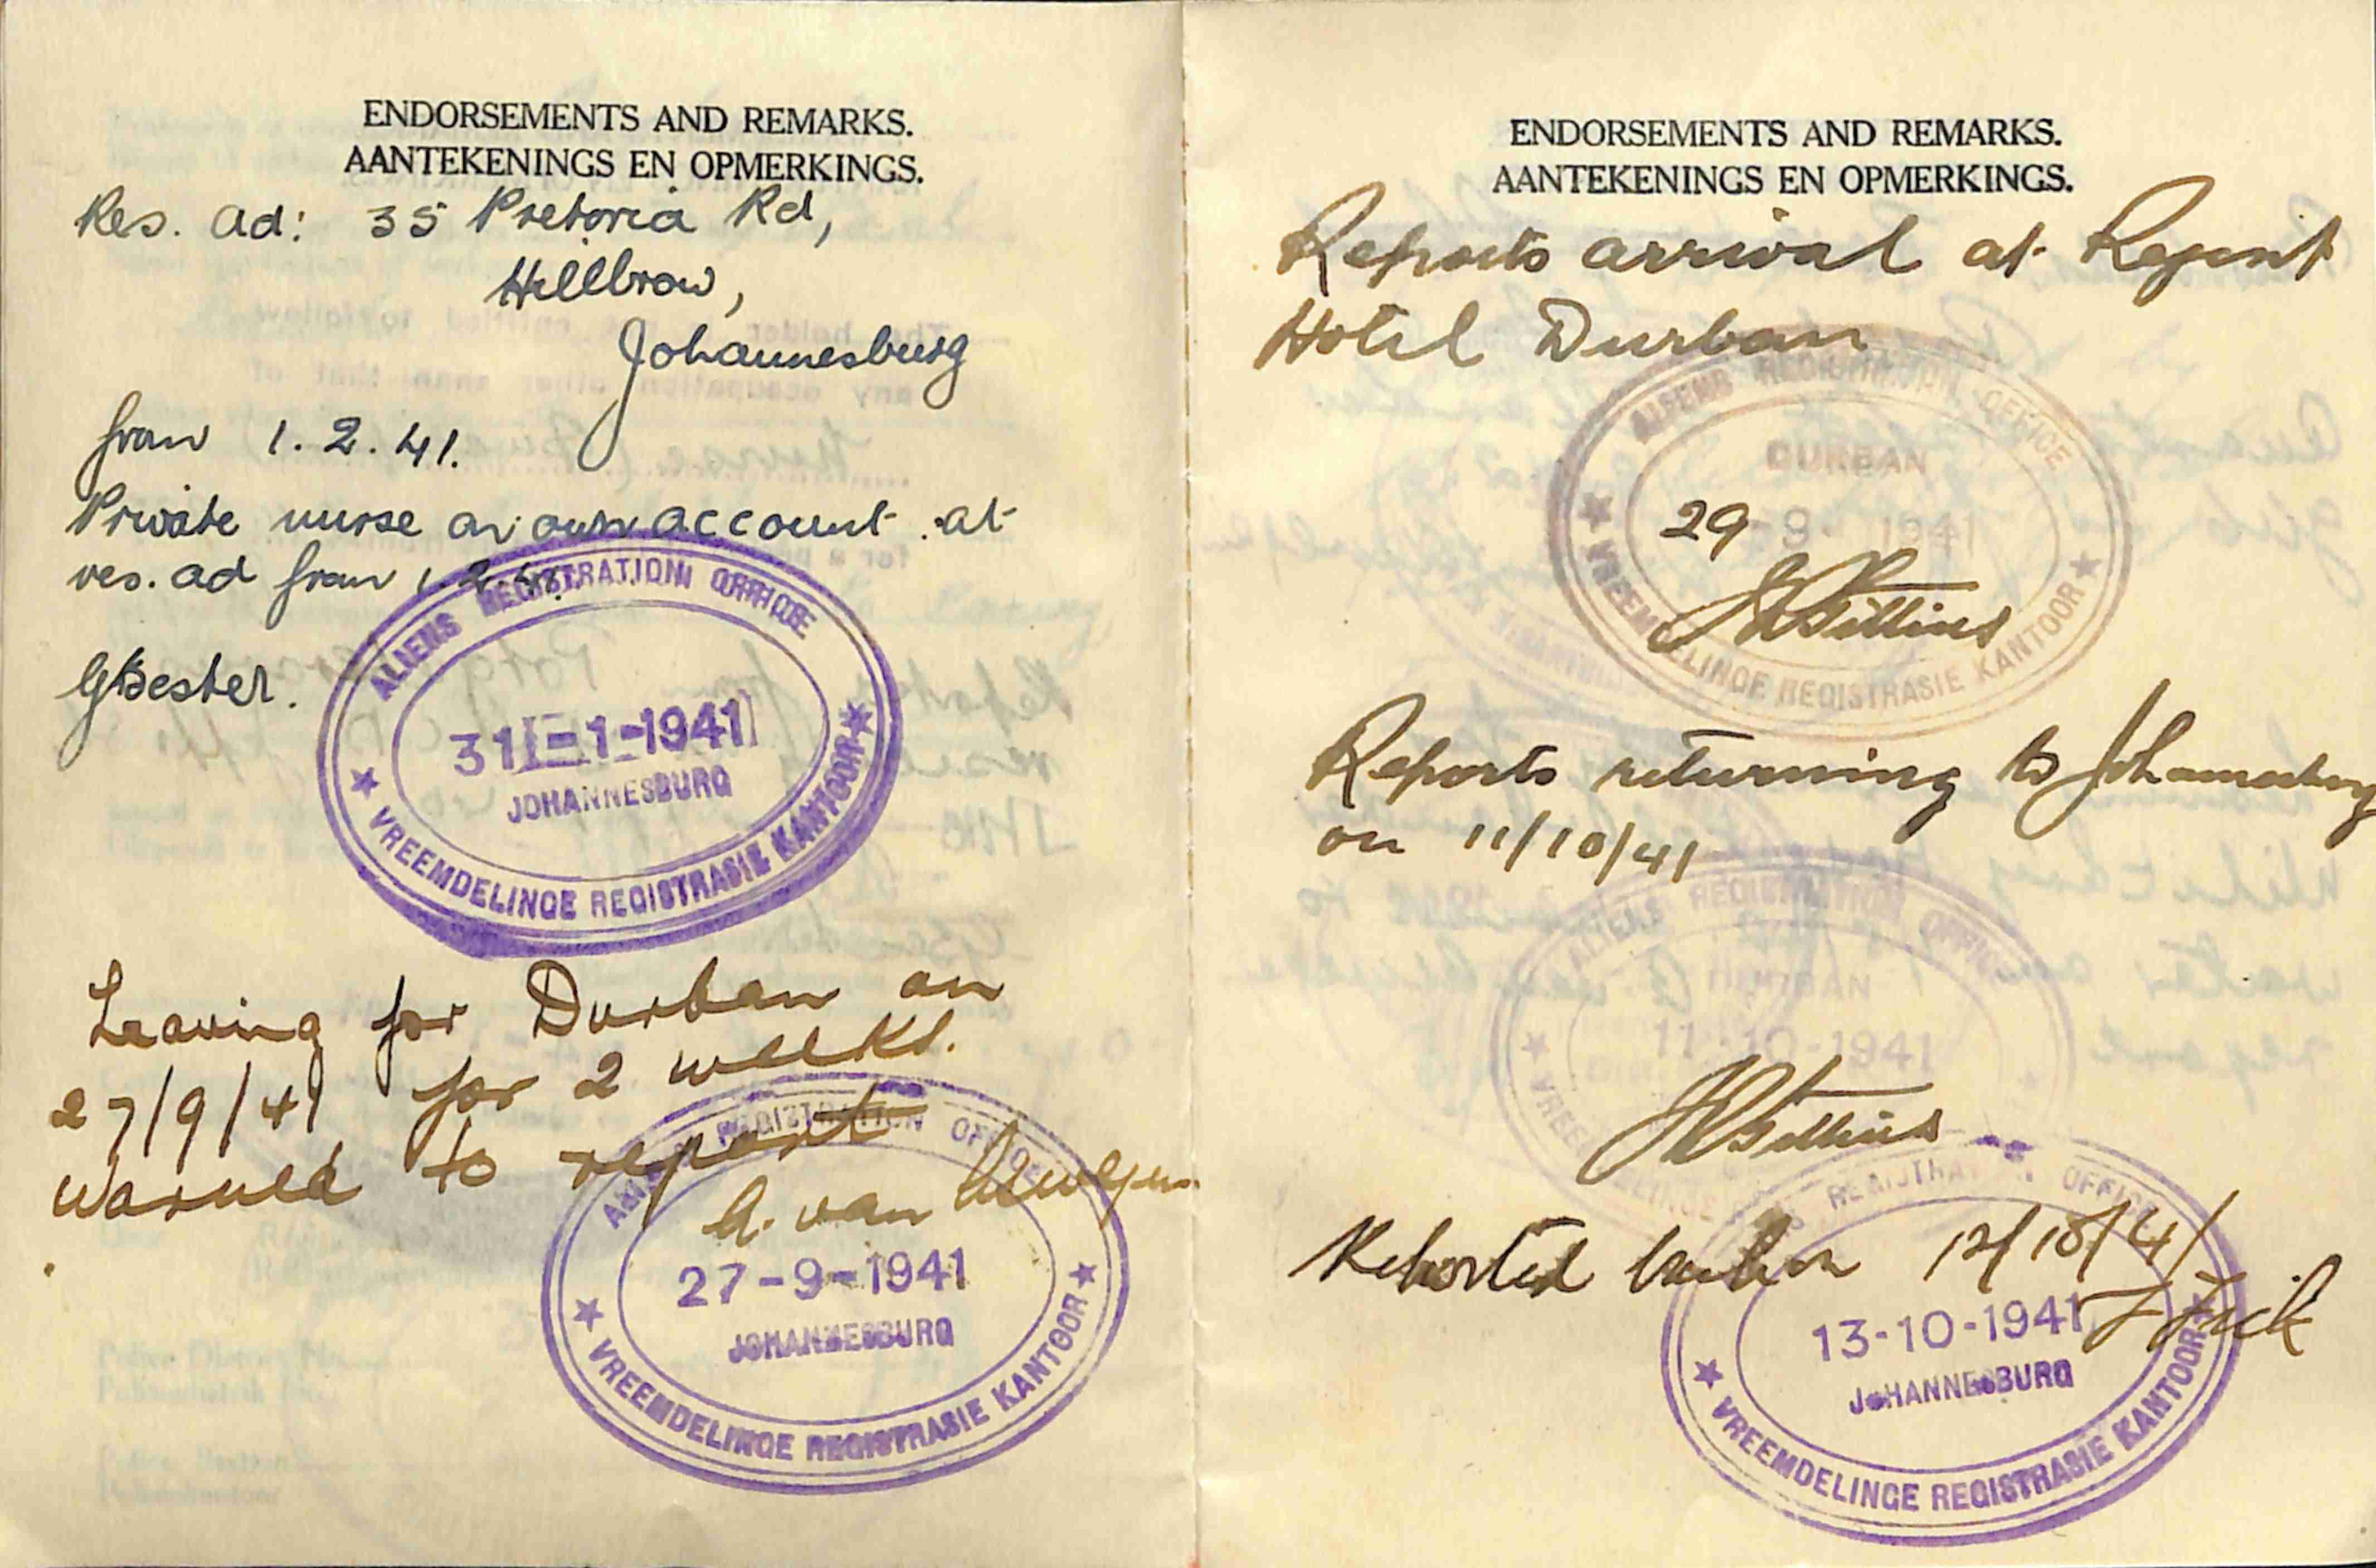 ENDORSEMENTS AND REMARKS.
AANTEKENINGS EN OPMERKINGS.
Res. ad: 35 Pretoria Rd,
Hillbrow,
Johannesburg
from 1.2.41.
Private nurse on own account at
res. ad from 1.2.41.
ALIENS REGISTRATION OFFICE
GBester.
31-1-1941
JOHANNESBURG
VREEMDELINGE REGISTRASIE KANTOOR
Leaving for Durban on
27/9/41 for 2 weeks.
Warned to report
REGISTRATION OFFICE
A. van
27-9-1941
JOHANNESBURG
VREEMDELINGE REGISTRASIE KANTOOR
ENDORSEMENTS AND REMARKS.
AANTEKENINGS EN OPMERKINGS.
Reports arrival at Regent
Hotel Durban
ALIENS REGISTRATION OFFICE
DURBAN
29-9-1941
VREEMDELINGE REGISTRASIE KANTOOR
Reports returning to Johannesburg
on 11/10/41
ALIENS REGISTRATION OFFICE
DURBAN
11-10-1941
REGISTRATION OFFICE
Reported 12/10/41
13-10-1941
JOHANNESBURG
VREEMDELINGE REGISTRASIE KANTOOR